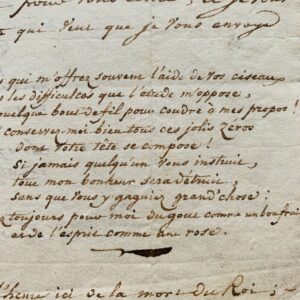 pour vous
qui veut que je vous envoye
s qui m'offrez souvent l'aide de vos ciseaux
les difficultés que l'étude m'oppose,
quelque bout de fil pour coudre à mes propos!
conservez-moi bien tous ces jolis zéros
dont votre tête se compose!
Si jamais quelqu'un vous instruit,
tout mon bonheur sera détruit,
sans que vous y gagniez grand'chose;
ez toujours pour moi du gout comme un bon fruit
et de l'esprit comme une rose.
l'heure ici de la mort du Roi;